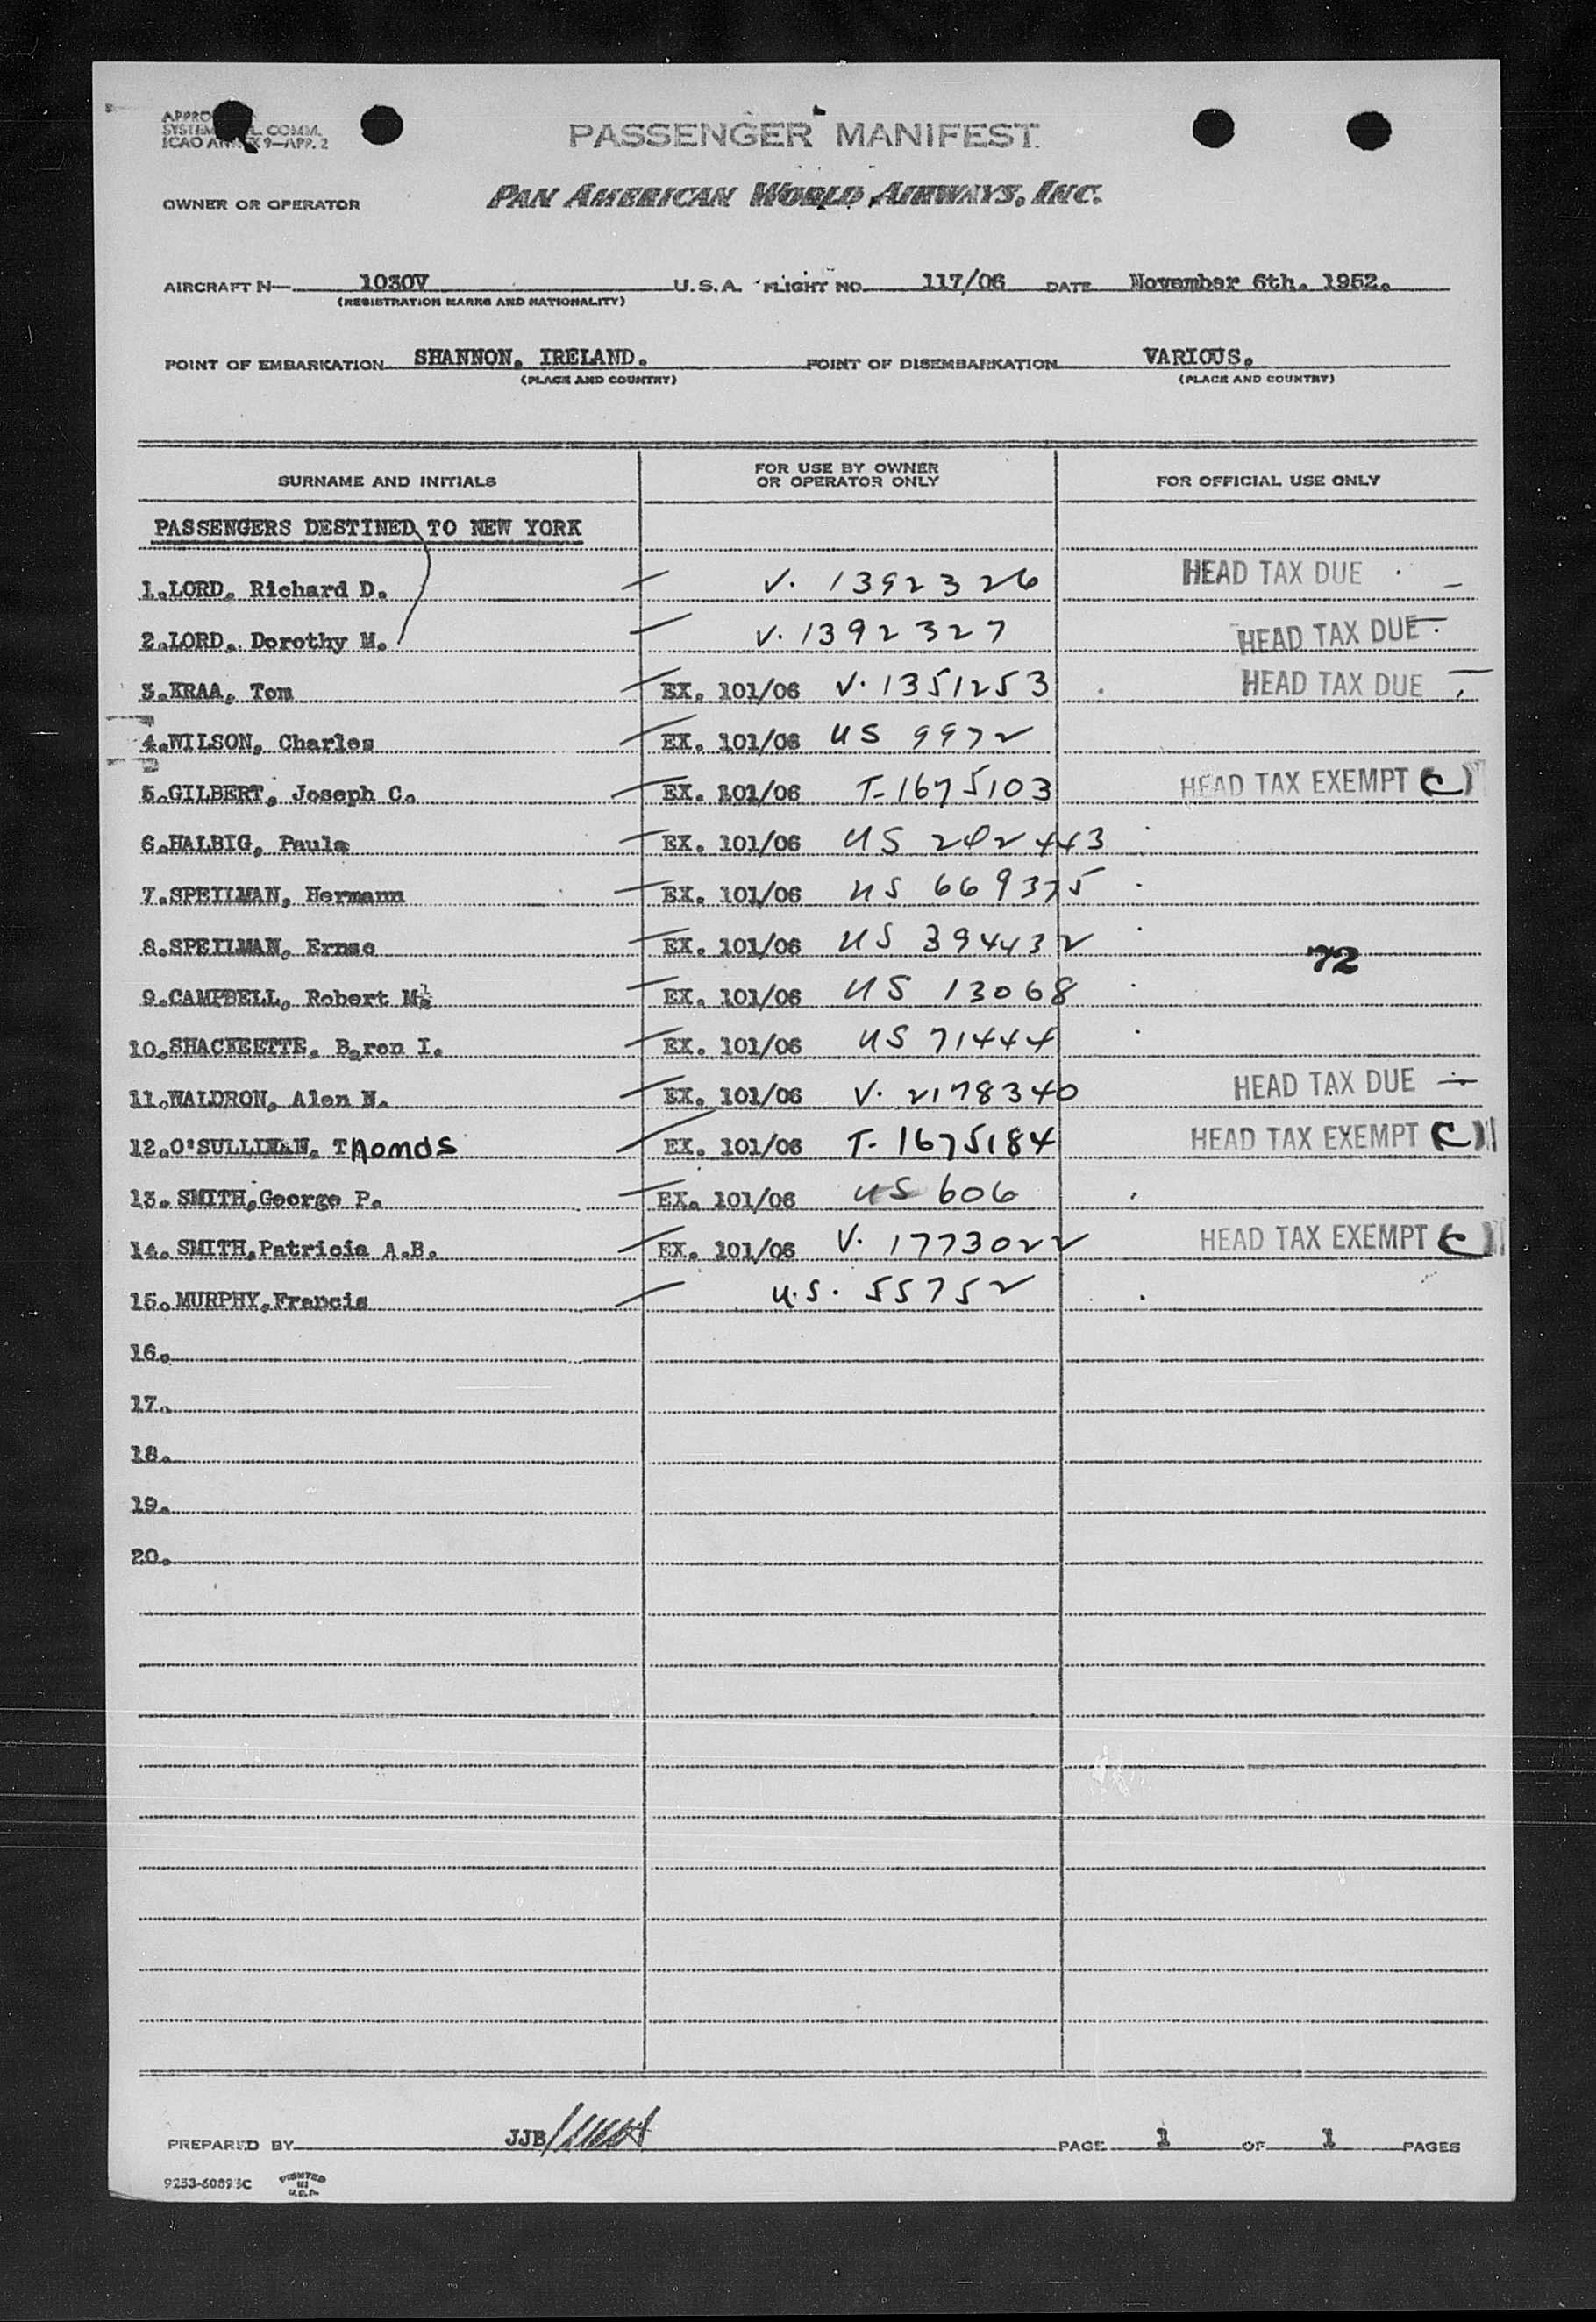 PASSENGER MANIFEST
SYSTEM COMM.
ICAO 9—APP. 2
OWNER OR OPERATOR PAN AMERICAN WORLD AIRWAYS, INC.
AIRCRAFT N— 1030V U.S.A. FLIGHT NO. 117/06 DATE November 6th. 1952.
(REGISTRATION MARKS AND NATIONALITY)
POINT OF EMBARKATION SHANNON, IRELAND. POINT OF DISEMBARKATION VARIOUS.
(PLACE AND COUNTRY) (PLACE AND COUNTRY)
SURNAME AND INITIALS FOR USE BY OWNER OR OPERATOR ONLY FOR OFFICIAL USE ONLY
PASSENGERS DESTINED TO NEW YORK
1. LORD, Richard D. V. 1392326 HEAD TAX DUE
2. LORD, Dorothy M. V. 1392327 HEAD TAX DUE
3. KRAA, Tom EX. 101/06 V. 1351253 HEAD TAX DUE
4. WILSON, Charles EX. 101/06 US 9972
5. GILBERT, Joseph C. EX. 101/06 T-1675103 HEAD TAX EXEMPT C
6. HALBIG, Paula EX. 101/06 US 242443
7. SPEILMAN, Hermann EX. 101/06 US 669375
8. SPEILMAN, EX. 101/06 US 394432 72
9. CAMPBELL, Robert M. EX. 101/06 US 13068
10. Baron I. EX. 101/06 US 71444
11. WALDRON, Alan N. EX. 101/06 V. 2178340 HEAD TAX DUE
12. Thomas EX. 101/06 T-1675184 HEAD TAX EXEMPT C
13. SMITH, George P. EX. 101/06 US 606
14. SMITH, Patricia A.B. EX. 101/06 V. 1773022 HEAD TAX EXEMPT C
15. MURPHY, Francis U.S. 55752
16.
17.
18.
19.
20.
PREPARED BY JJB/ PAGE 1 OF 1 PAGES
PRINTED IN U.S.A.